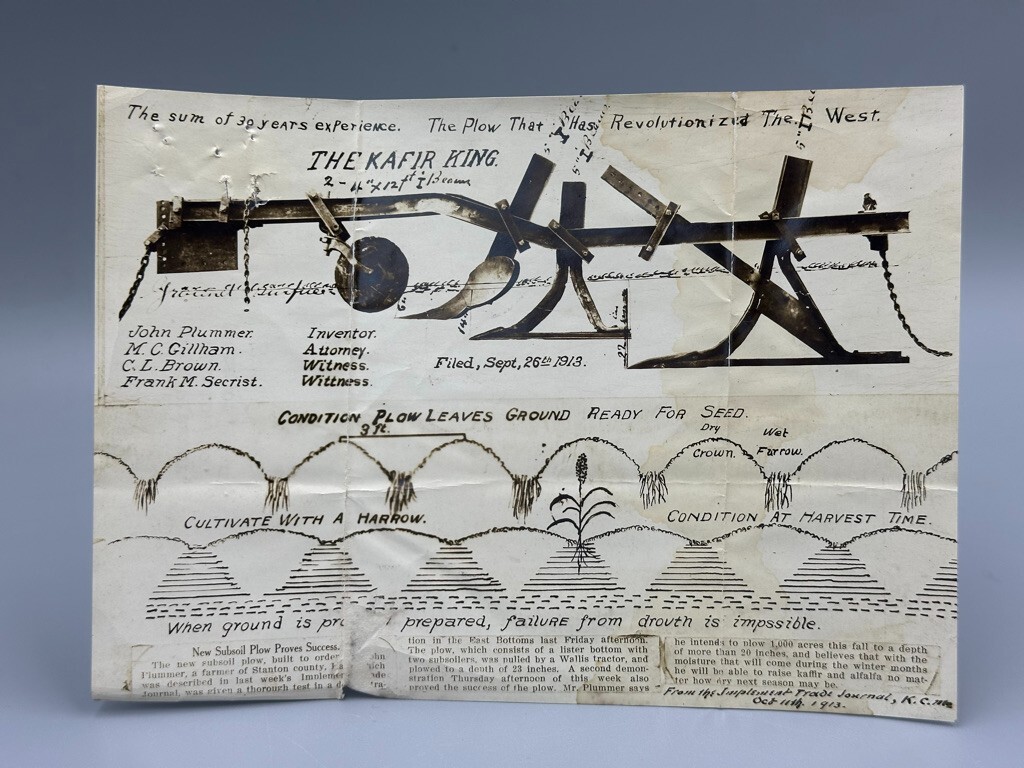 The sum of 30 years experience. The Plow That Has Revolutionized The West.
THE KAFIR KING.
2 - 4"x12ft I Beams
5" I Bea
5" I Beam
5" I Bea
Ground
6 in
14 in
22 in.
John Plummer. Inventor.
M.C. Gillham. Attorney.
C.L. Brown. Witness.
Frank M. Secrist. Wittness.
Filed, Sept, 26th 1913.
CONDITION PLOW LEAVES GROUND READY FOR SEED.
3 ft.
Dry Crown.
Wet Farrow.
CULTIVATE WITH A HARROW.
CONDITION AT HARVEST TIME.
When ground is pro prepared, failure from drouth is impssible.
New Subsoil Plow Proves Success.
The new subsoil plow, built to order John
Plummer, a farmer of Stanton county, which
was described in last week's Impleme Tra-
Journal, was given a thorough test in a d
tion in the East Bottoms last Friday afternoon.
The plow, which consists of a lister bottom with
two subsoilers, was pulled by a Wallis tractor, and
plowed to a depth of 23 inches. A second demon-
stration Thursday afternoon of this week also
proved the success of the plow. Mr. Plummer says
he intends to plow 1,000 acres this fall to a depth
of more than 20 inches, and believes that with the
moisture that will come during the winter months
he will be able to raise kaffir and alfalfa no mat-
ter how dry next season may be.
From the Implement Trade Journal, K.C. Mo
Oct 11th, 1913.